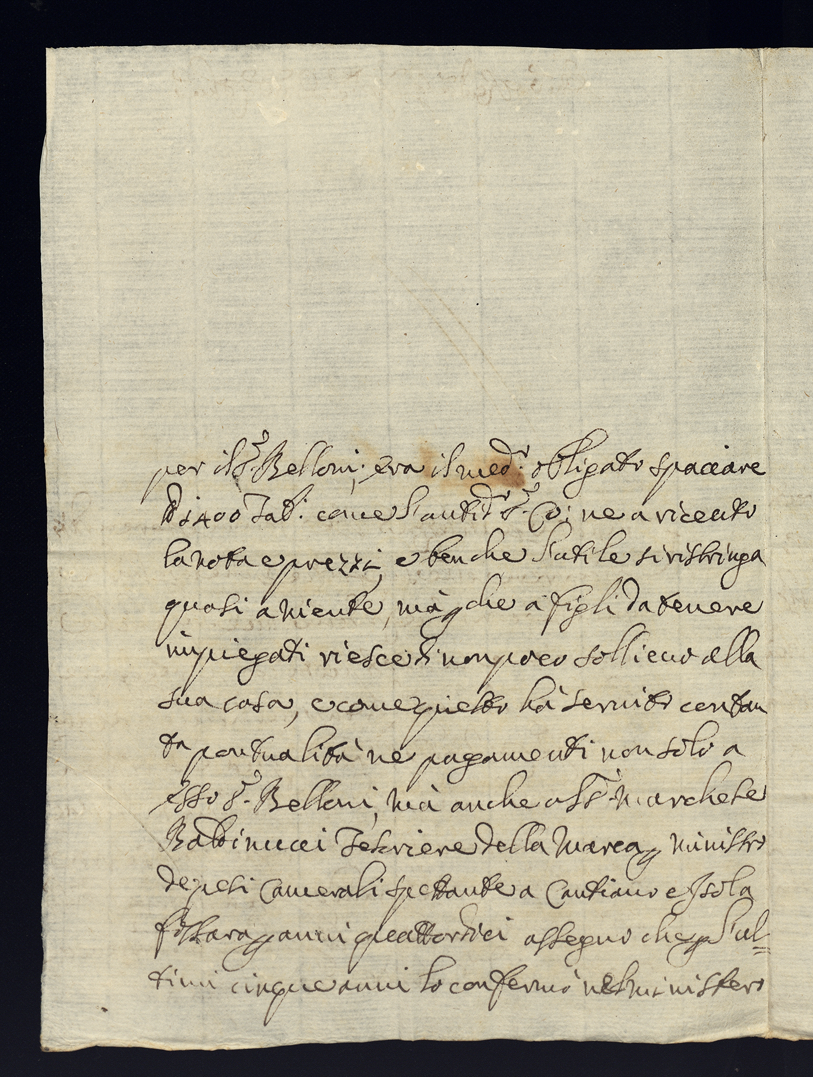 per il S.r Belloni; era il med.o obligato spacciare
di 1400 Tab. come l'antid.o S.r ne a riceuto
la nota e prezzi, e benche l'utile si ristringa
quasi a niente, mà che a figli da tenere
impiegati riesce di non poco sollieuo alla
sua casa, e come questo hà seruito con tan
ta pontualità ne pagamenti non solo a
esso S.r Belloni, mà anche al S.r Marchese
Baldinucci Tesoriere della Marca ministro
de pesi Camerali spettante a Cantiano e Isola
fossara anni quattordici assegno che l'ul=
timi cinque anni lo confermò nel ministero